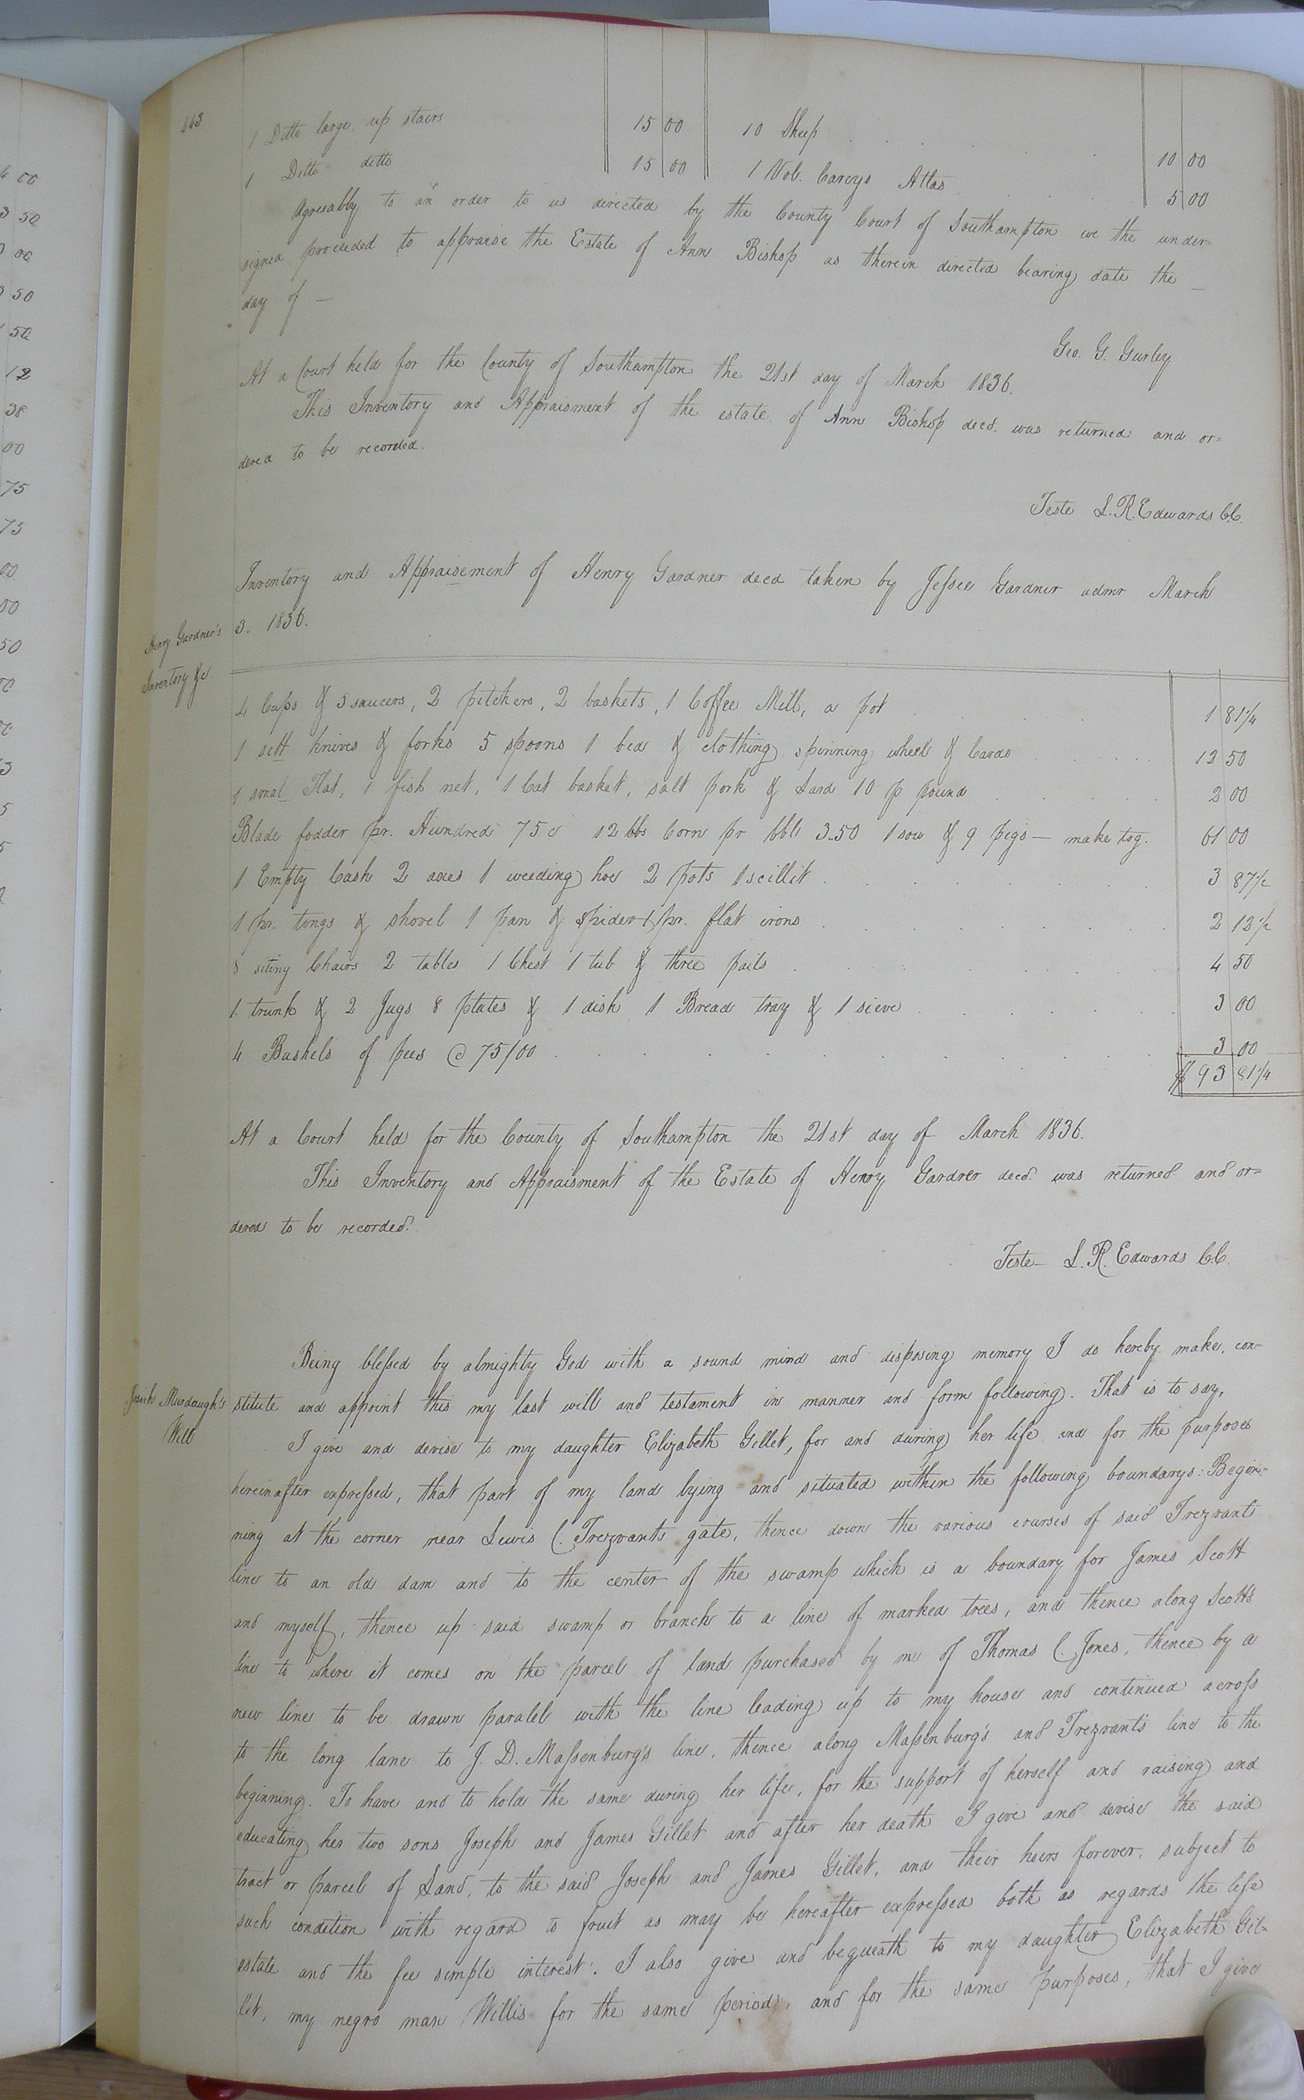 443
1 Ditto large up stairs 15 00 10 Sheep 10 00
1 Ditto ditto 15 00 1 Vol. Careys Atlas 5 00
Agreeably to an order to us directed by the County Court of Southampton we the under=
signed proceeded to appraise the Estate of Ann Bishop as therein directed bearing date the —
day of —
Geo. G. Gurley
At a Court held for the County of Southampton the 21st day of March 1836.
This Inventory and Appraisment of the estate of Ann Bishop decd. was returned and or=
dered to be recorded.
Teste L. R. Edwards C.C.
Inventory and Appraisement of Henry Gardner decd taken by Jessee Gardner admr March
3. 1836.
Henry Gardner's
Inventory &c
4 Cups & 5 saucers, 2 pitchers, 2 baskets, 1 Coffee Mill, a pot 1 81¼
1 sett knives & forks 5 spoons 1 bed & clothing spinning wheel & Cards 12 50
1 smal Flat, 1 fish net, 1 Cat basket, salt pork & Lard 10 p pound 2 00
Blade fodder pr. Hundred 75c 12 bbs Corn pr bbl 3.50 1 sow & 9 pigs — make tog. 61 00
1 Empty Cask 2 axes 1 weeding hoe 2 pots 1 scillit 3 87½
1 pr. tongs & shovel 1 pan & spider 1 pr. flat irons 2 12½
8 siting Chairs 2 tables 1 Chest 1 tub & three pails 4 50
1 trunk & 2 Jugs 8 plates & 1 dish 1 Bread tray & 1 sieve 3 00
4 Bushels of pees @ 75/00 3 00
$ 93 81¼
At a Court held for the County of Southampton the 21st day of March 1836.
This Inventory and Appraisment of the Estate of Henry Gardner decd. was returned and or=
dered to be recorded.
Teste— L. R. Edwards C.C.
Being blessed by almighty God with a sound mind and disposing memory I do hereby make, con-
Murdaugh's
Will
stitute and appoint this my last will and testament in manner and form following. That is to say,
I give and devise to my daughter Elizabeth Gillet, for and during her life and for the purposes
hereinafter expressed, that part of my land lying and situated within the following boundarys: Begin-
ning at the corner near Lewis C. Trezvants gate, thence down the various courses of said Trezvants
line to an old dam and to the center of the swamp which is a boundary for James Scott
and myself, thence up said swamp or branch to a line of marked trees, and thence along Scotts
line to where it comes on the parcel of land purchased by me of Thomas C. Jones, thence by a
new line to be drawn paralel with the line leading up to my house and continued across
to the long lane to J. D. Massenburg's line, thence along Massenburg's and Trezvant's line to the
beginning. To have and to hold the same during her life, for the support of herself and raising and
educating her two sons Joseph and James Gillet and after her death I give and devise the said
tract or parcel of Land, to the said Joseph and James Gillet, and their heirs forever, subject to
such condition with regard to fruit as may be hereafter expressed both as regards the life
estate and the fee simple interest. I also give and bequeath to my daughter Elizabeth Gil=
let, my negro man Willis for the same period, and for the same purposes, that I give